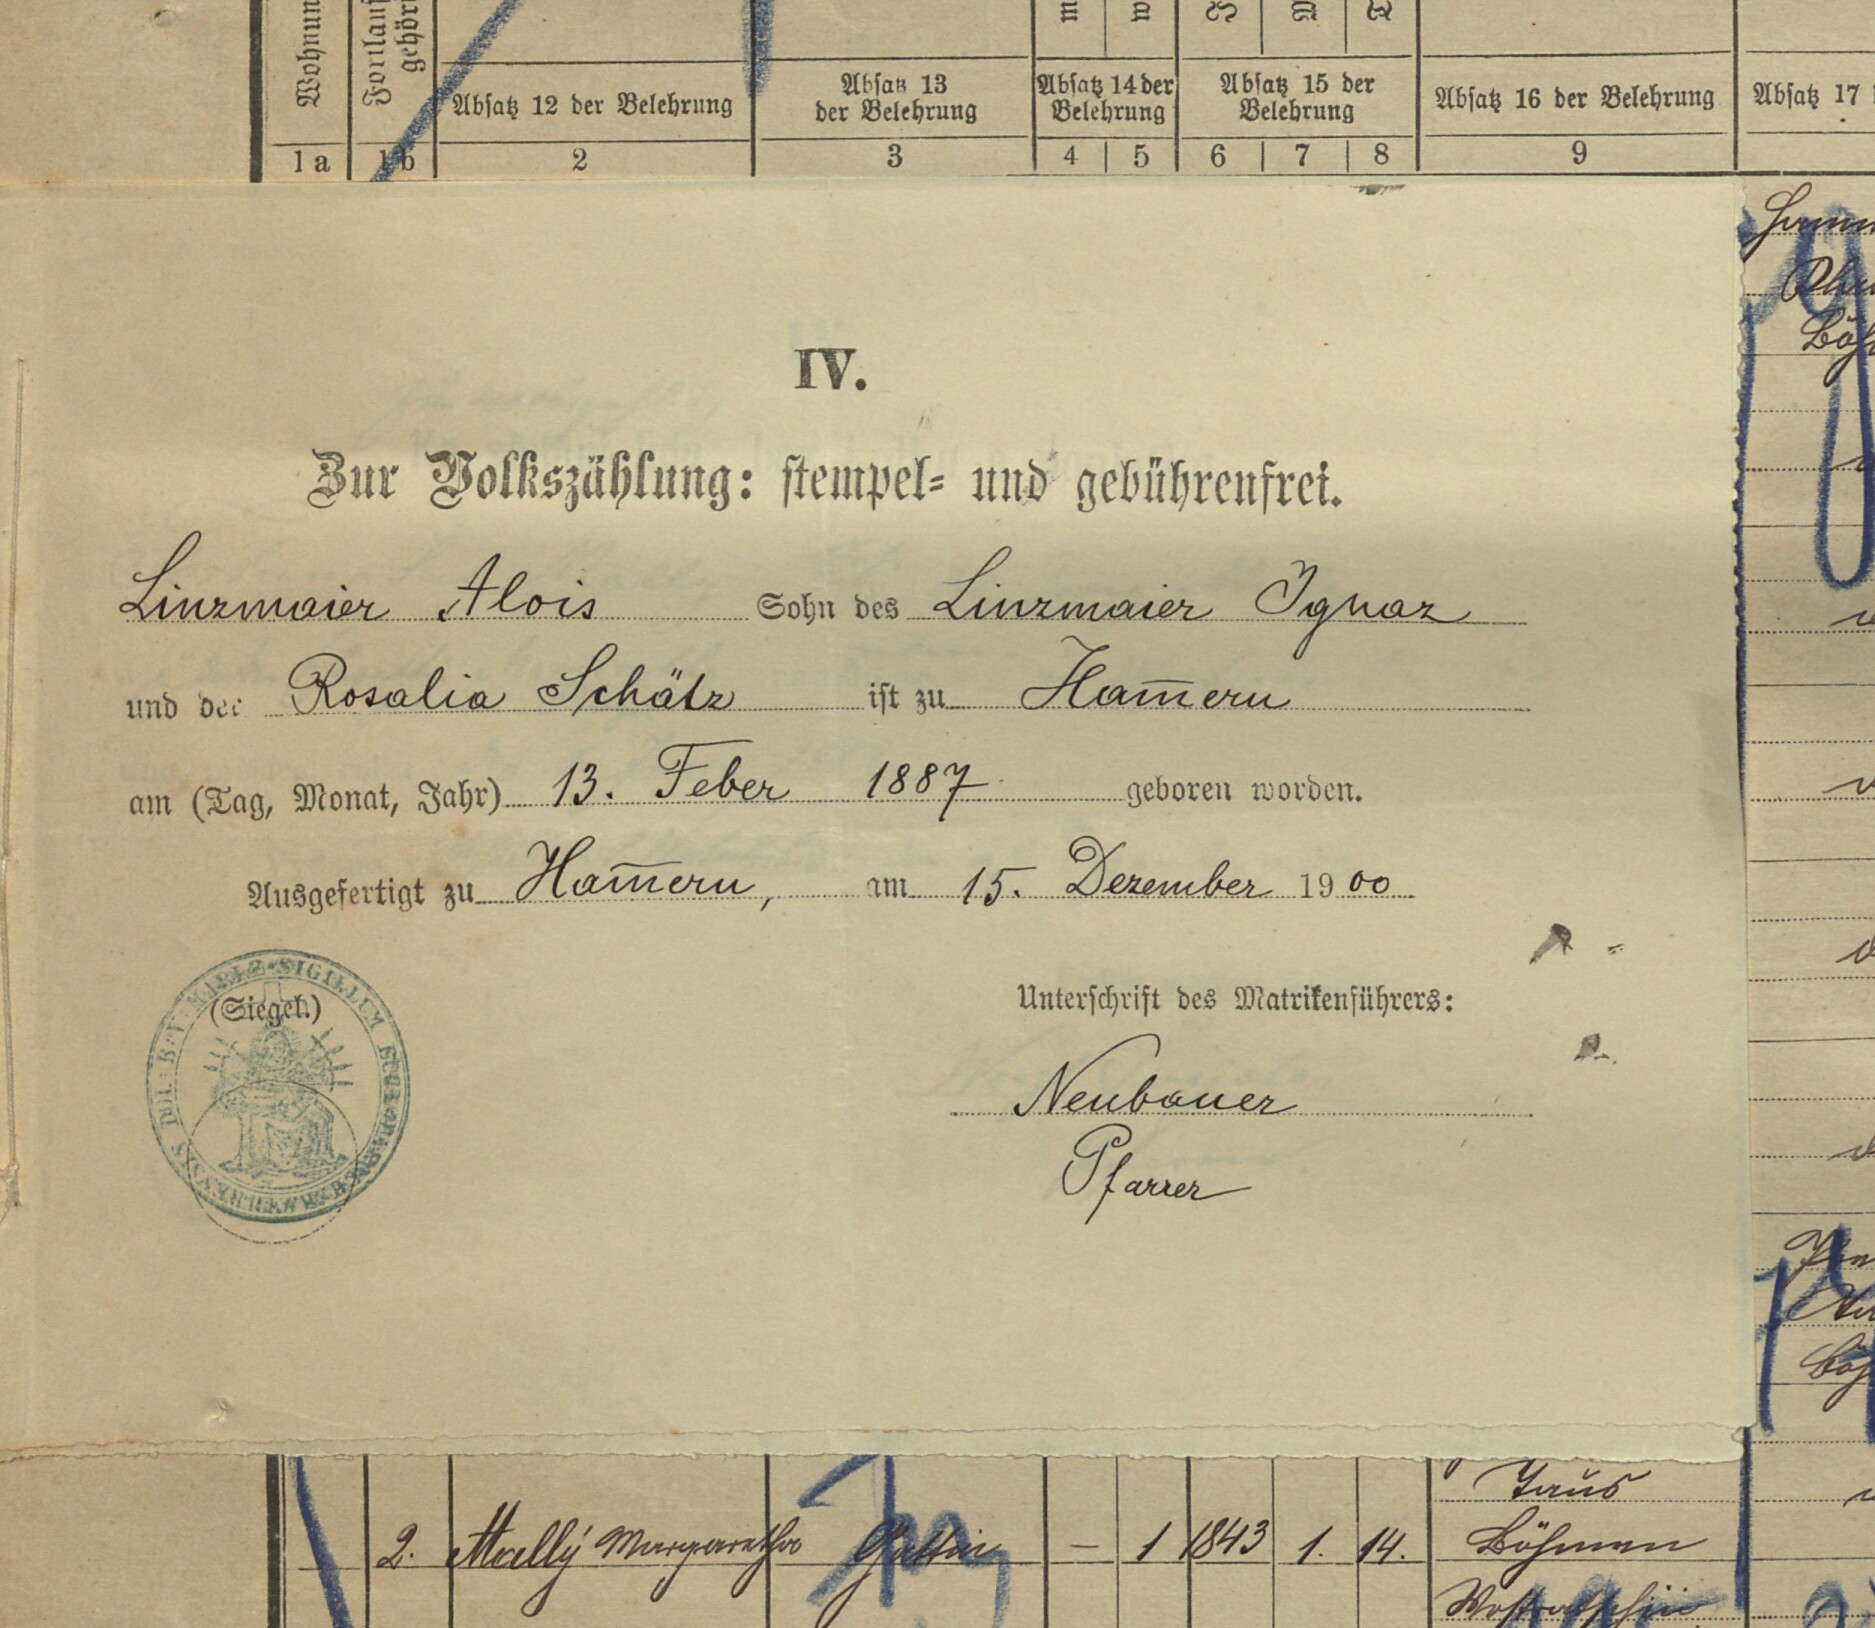 Wohnun
Fortlauf
gehör
Absatz 12 der Belehrung
Absatz 13
der Belehrung
Absatz 14 der
Belehrung
Absatz 15 der
Belehrung
Absatz 16 der Belehrung
Absatz 17
1a 1b 2 3 4 5 6 7 8 9
IV.
Zur Volkszählung: stempel- und gebührenfrei.
Linzmaier Alois Sohn des Linzmaier Ignaz
und der Rosalia Schätz ist zu Ham̅ern
am (Tag, Monat, Jahr) 13. Feber 1887 geboren worden.
Ausgefertigt zu Ham̅ern, am 15. Dezember 1900
(Siegel.)
Unterschrift des Matrikenführers:
Neubauer
Pfarrer
Taus
2. Mally Margaretha Gattin – 1 1843 1. 14. Böhmen